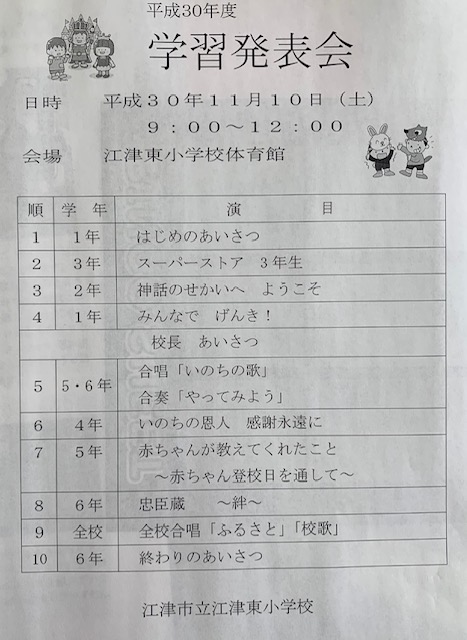 平成30年度
学習発表会
日時　平成３０年１１月１０日（土）
９：００～１２：００
会場　江津東小学校体育館
順　学　年　演　目
1　1年　はじめのあいさつ
2　3年　スーパーストア　3年生
3　2年　神話のせかいへ　ようこそ
4　1年　みんなで　げんき！
校長　あいさつ
5　5・6年　合唱「いのちの歌」
合奏「やってみよう」
6　4年　いのちの恩人　感謝永遠に
7　5年　赤ちゃんが教えてくれたこと
～赤ちゃん登校日を通して～
8　6年　忠臣蔵　～絆～
9　全校　全校合唱「ふるさと」「校歌」
10　6年　終わりのあいさつ
江津市立江津東小学校